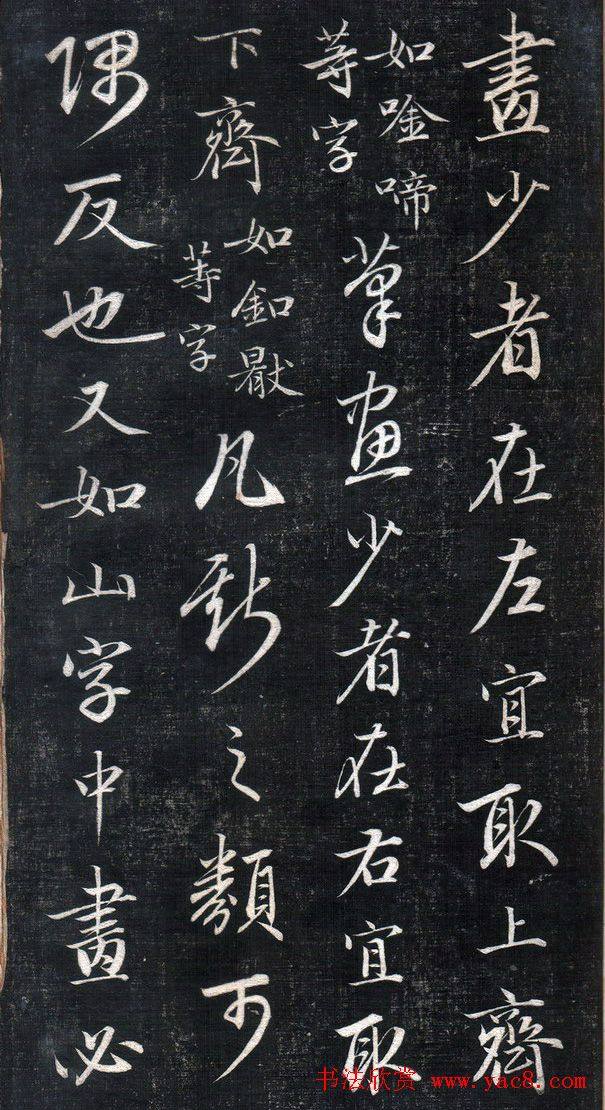 畫少者在左宜取上齊
如唫啼
等字
筆畫少者在右宜取
下齊
如釦
等字
凡斯之類可
隅反也又如山字中畫必
书法欣赏 www.yac8.com